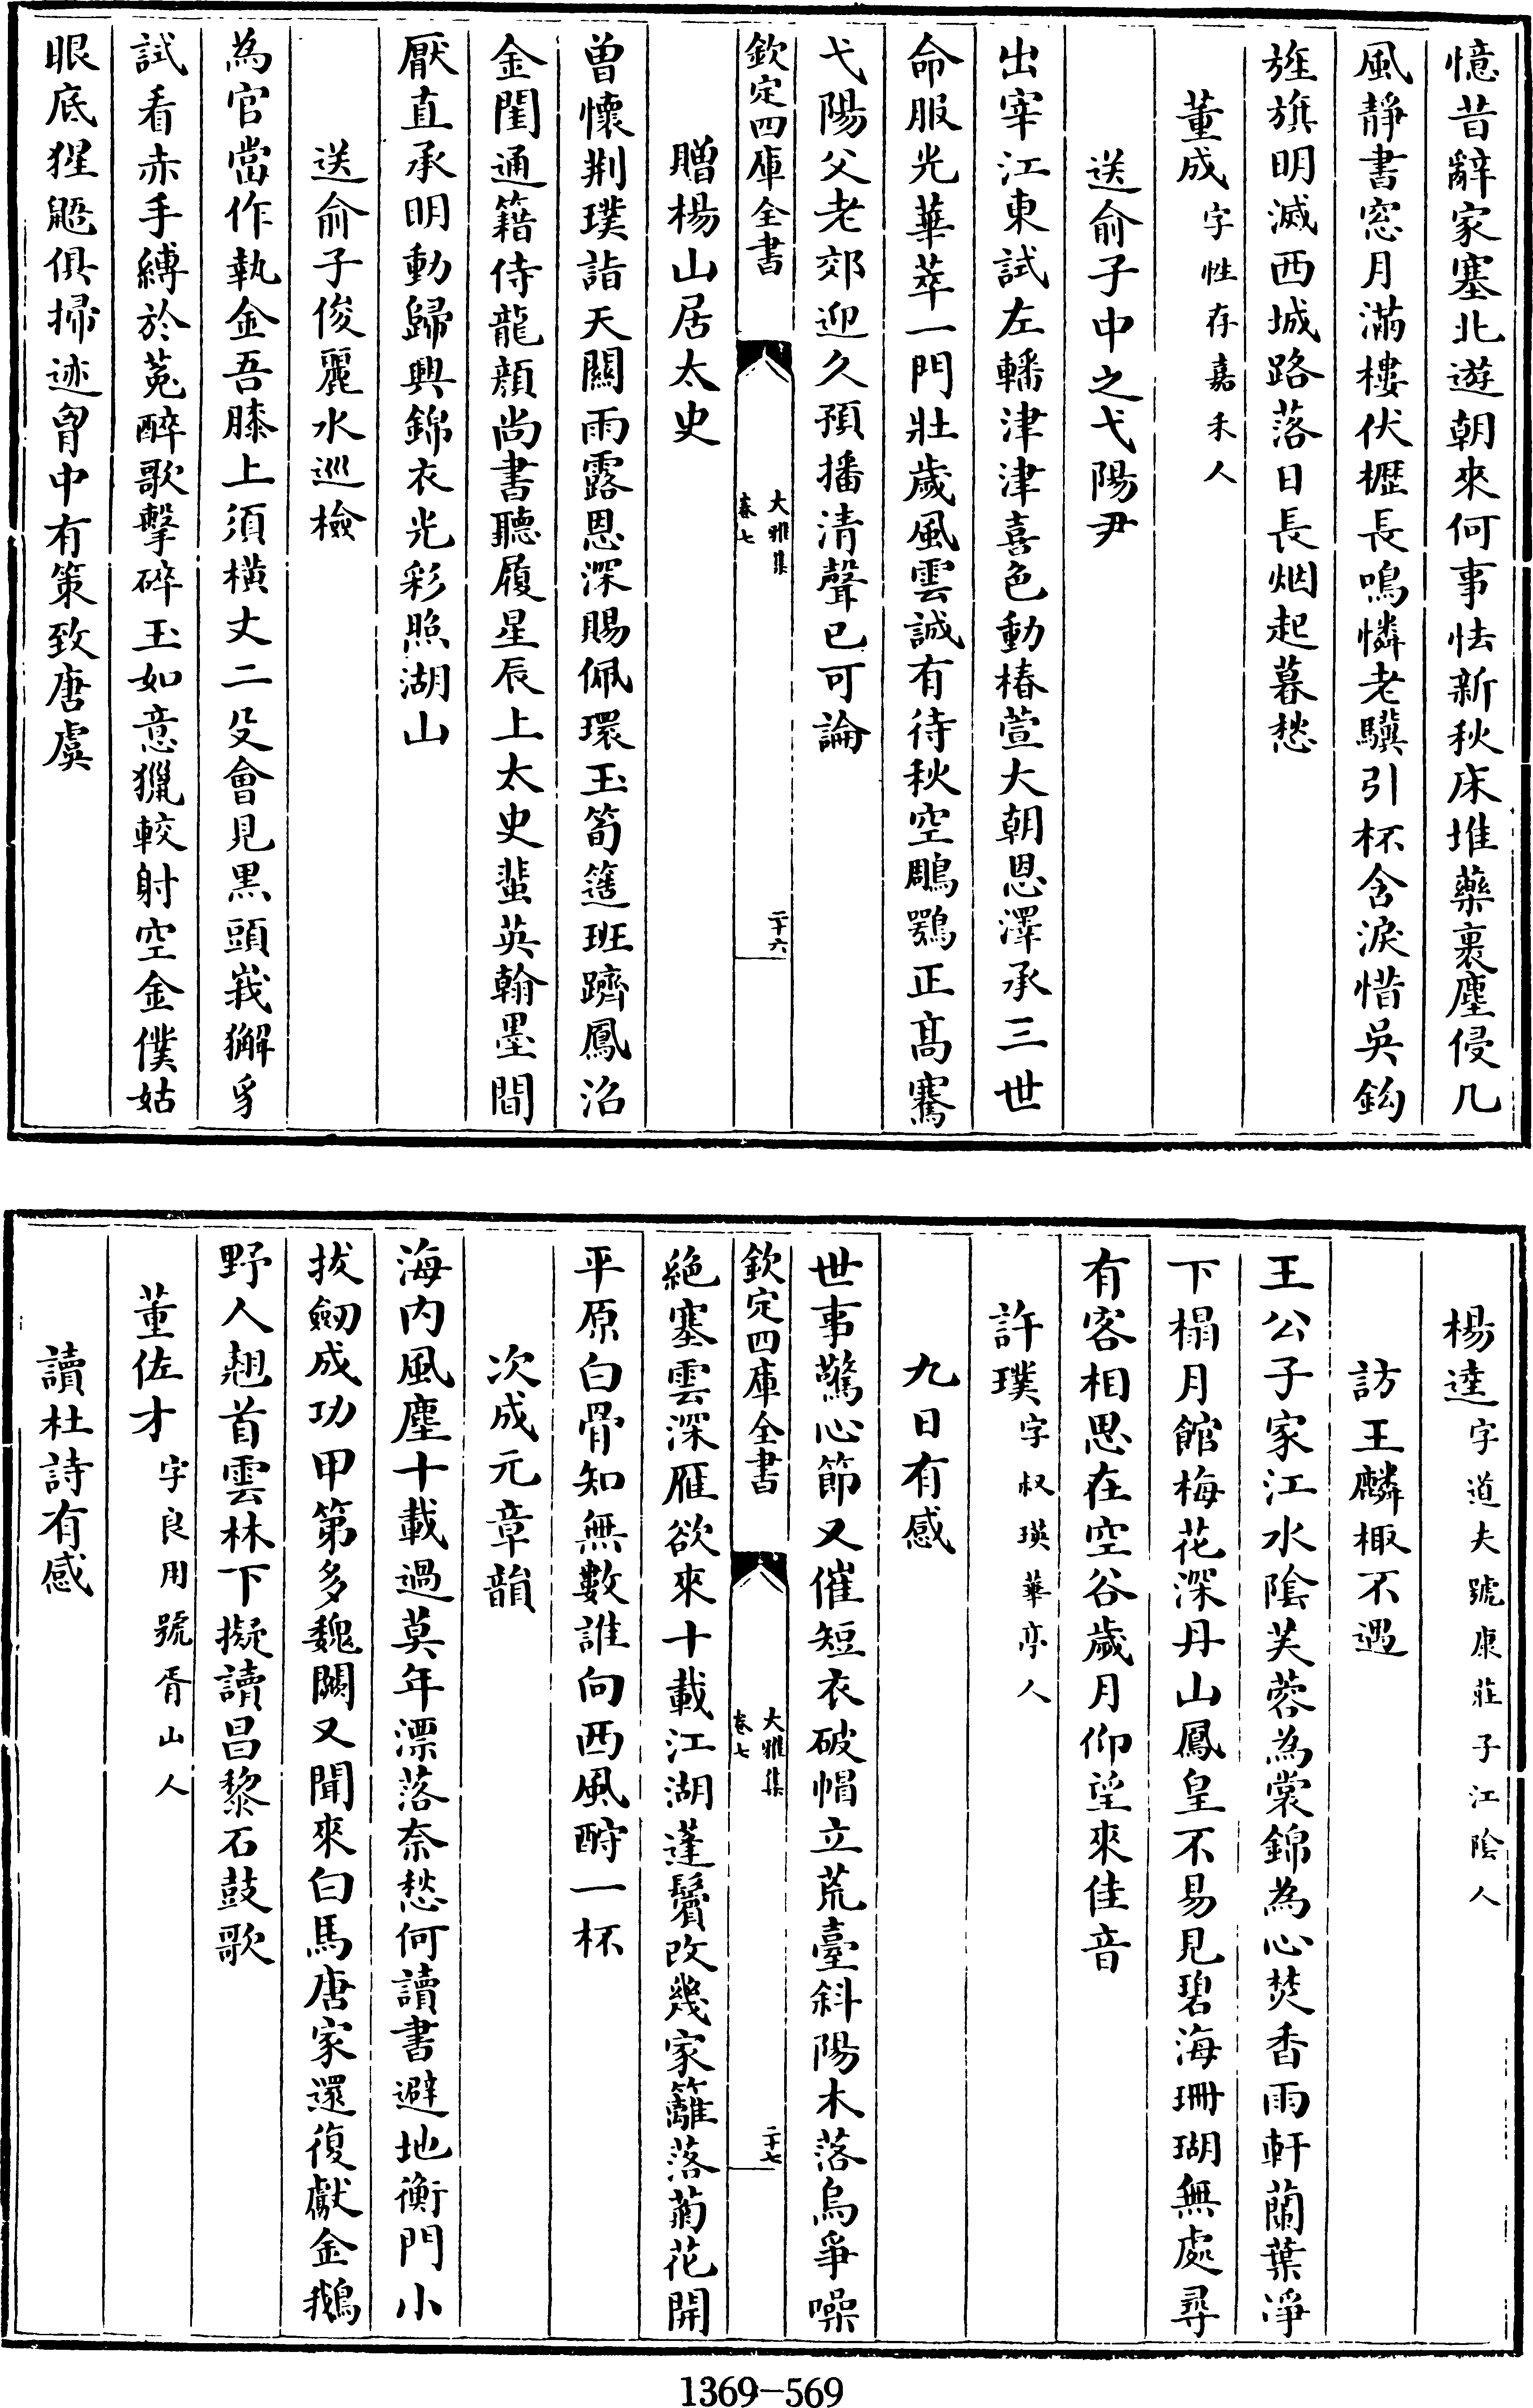 憶昔辭家塞北遊朝來何事怯新秋床堆藥裹塵侵几
風靜書窓月滿樓伏櫪長鳴憐老驥引杯含淚惜吳鈎
旌旗明滅西城路落日長烟起暮愁
董成字性存嘉禾人
送俞子中之弋陽尹
出宰江東試左轓津津喜色動椿萱大朝恩澤承三世
命服光華萃一門壯歲風雲誠有待秋空鵰鶚正髙騫
弋陽父老郊迎久預播清聲已可論
欽定四庫全書
大雅集
卷七
二十六
贈楊山居太史
曽懷荆璞詣天闕雨露恩深賜佩環玉筍籧班躋鳳沼
金閨通籍侍龍顔尚書聽履星辰上太史蜚英翰墨間
厭直承明動歸興錦衣光彩照湖山
送俞子俊麗水巡檢
為官當作執金吾膝上須横丈二殳會見黒頭峩獬豸
試看赤手縛於菟醉歌擊碎玉如意獵較射空金僕姑
眼底猩鼯俱掃迹胷中有策致唐虞
楊逵字道夫號康莊子江陰人
訪王麟棷不遇
王公子家江水隂芙蓉為裳錦為心焚香雨軒蘭葉凈
下榻月館梅花深丹山鳳皇不易見碧海珊瑚無處尋
有客相思在空谷歲月仰望來佳音
許璞字叔瑛華亭人
九日有感
世事驚心節又催短衣破帽立荒臺斜陽木落烏爭噪
欽定四庫全書
大雅集
卷七
二十七
絶塞雲深雁欲來十載江湖蓬鬢改幾家籬落菊花開
平原白骨知無數誰向西風酹一杯
次成元章韻
海内風塵十載過莫年漂落奈愁何讀書避地衡門小
拔劒成功甲第多魏闕又聞來白馬唐家還復獻金鵝
野人翹首雲林下擬讀昌黎石鼓歌
董佐才字良用號胥山人
讀杜詩有感
1369-569